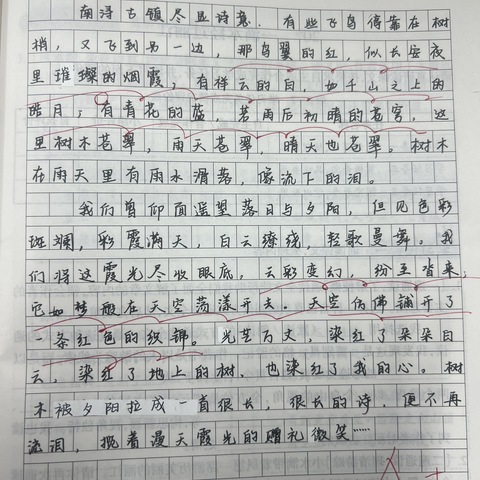 南浔古镇尽显诗意。有些飞鸟停靠在树
梢，又飞到另一边，那鸟翼的红，似长安夜
里璀璨的烟霞；有祥云的白，如千山之上的
皓月；有青花的蓝，若雨后初晴的苍穹，这
里树木苍翠，雨天苍翠，晴天也苍翠。树木
在雨天里有雨水滑落，像流下的泪。
我们曾仰面遥望落日与夕阳，但见色彩
斑斓，彩霞满天，白云缭绕，轻歌曼舞。我
们将这霞光尽收眼底，云彩变幻，纷至沓来，
它如梦般在天空荡漾开去。天空仿佛铺开了
一条红色的织锦。光芒万丈，染红了朵朵白
云，染红了地上的树，也染红了我的心。树
木被夕阳拉成一首很长，很长的诗，便不再
流泪，揽着漫天霞光的赠礼微笑……